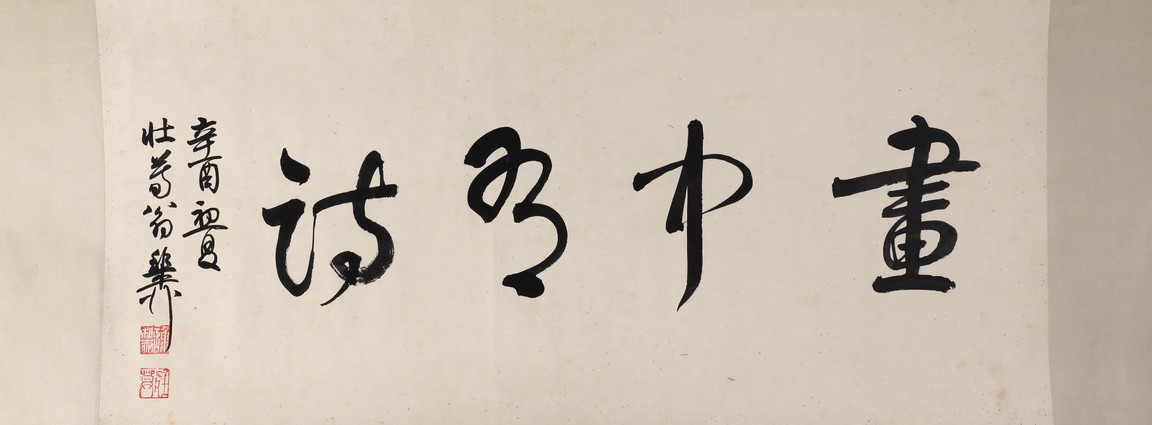 畫中有詩
辛酉初夏
壯暮翁稚